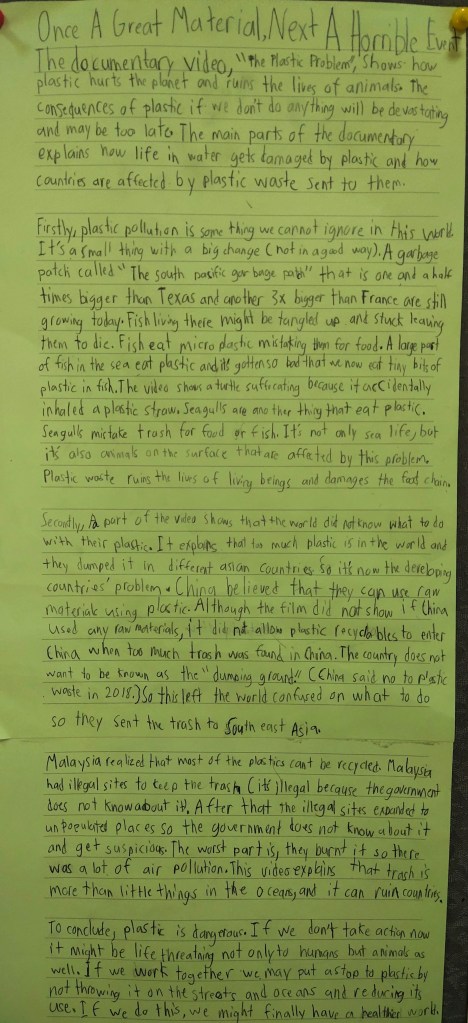 Once A Great Material, Next A Horrible Event
The documentary video, "The Plastic Problem", shows how
plastic hurts the planet and ruins the lives of animals. The
consequences of plastic if we don't do anything will be devastating
and may be too late. The main parts of the documentary
explains how life in water gets damaged by plastic and how
countries are affected by plastic waste sent to them.
Firstly, plastic pollution is some thing we cannot ignore in this world.
It's a small thing with a big change (not in a good way). A garbage
patch called "The south pacific garbage path" that is one and a half
times bigger than Texas and another 3x bigger than France are still
growing today. Fish living there might be tangled up and stuck leaving
them to die. Fish eat micro plastic mistaking them for food. A large part
of fish in the sea eat plastic and it's gotten so bad that we now eat tiny bits of
plastic in fish. The video shows a turtle suffocating because it accidentally
inhaled a plastic straw. Seagulls are another thing that eat plastic.
Seagulls mistake trash for food or fish. It's not only sea life, but
it's also animals on the surface that are affected by this problem.
Plastic waste ruins the lives of living beings and damages the food chain.
Secontly, A part of the video shows that the world did not know what to do
with their plastic. It explains that too much plastic is in the world and
they dumped it in different asian countries so it's now the developing
countries' problem. China believed that they can use raw
materials using plastic. Although the film did not show if China
used any raw materials, it did not allow plastic recyclables to enter
China when too much trash was found in China. The country does not
want to be known as the "dumping ground!" (China said no to plastic
waste in 2018.) So this left the world confused on what to do
so they sent the trash to South east Asia.
Malaysia realized that most of the plastics can't be recycled. Malaysia
had illegal sites to keep the trash (it's illegal because the government
does not know about it). After that the illegal sites expanded to
unpopulated places so the government does not know about it
and get suspicious. The worst part is, they burnt it so there
was a lot of air pollution. This video explains that trash is
more than little things in the oceans, and it can ruin countries.
To conclude, plastic is dangerous. If we don't take action now
it might be life threatning not only to humans but animals as
well. If we work together we may put a stop to plastic by
not throwing it on the streets and oceans and reducing its
use. If we do this, we might finally have a healthier world.